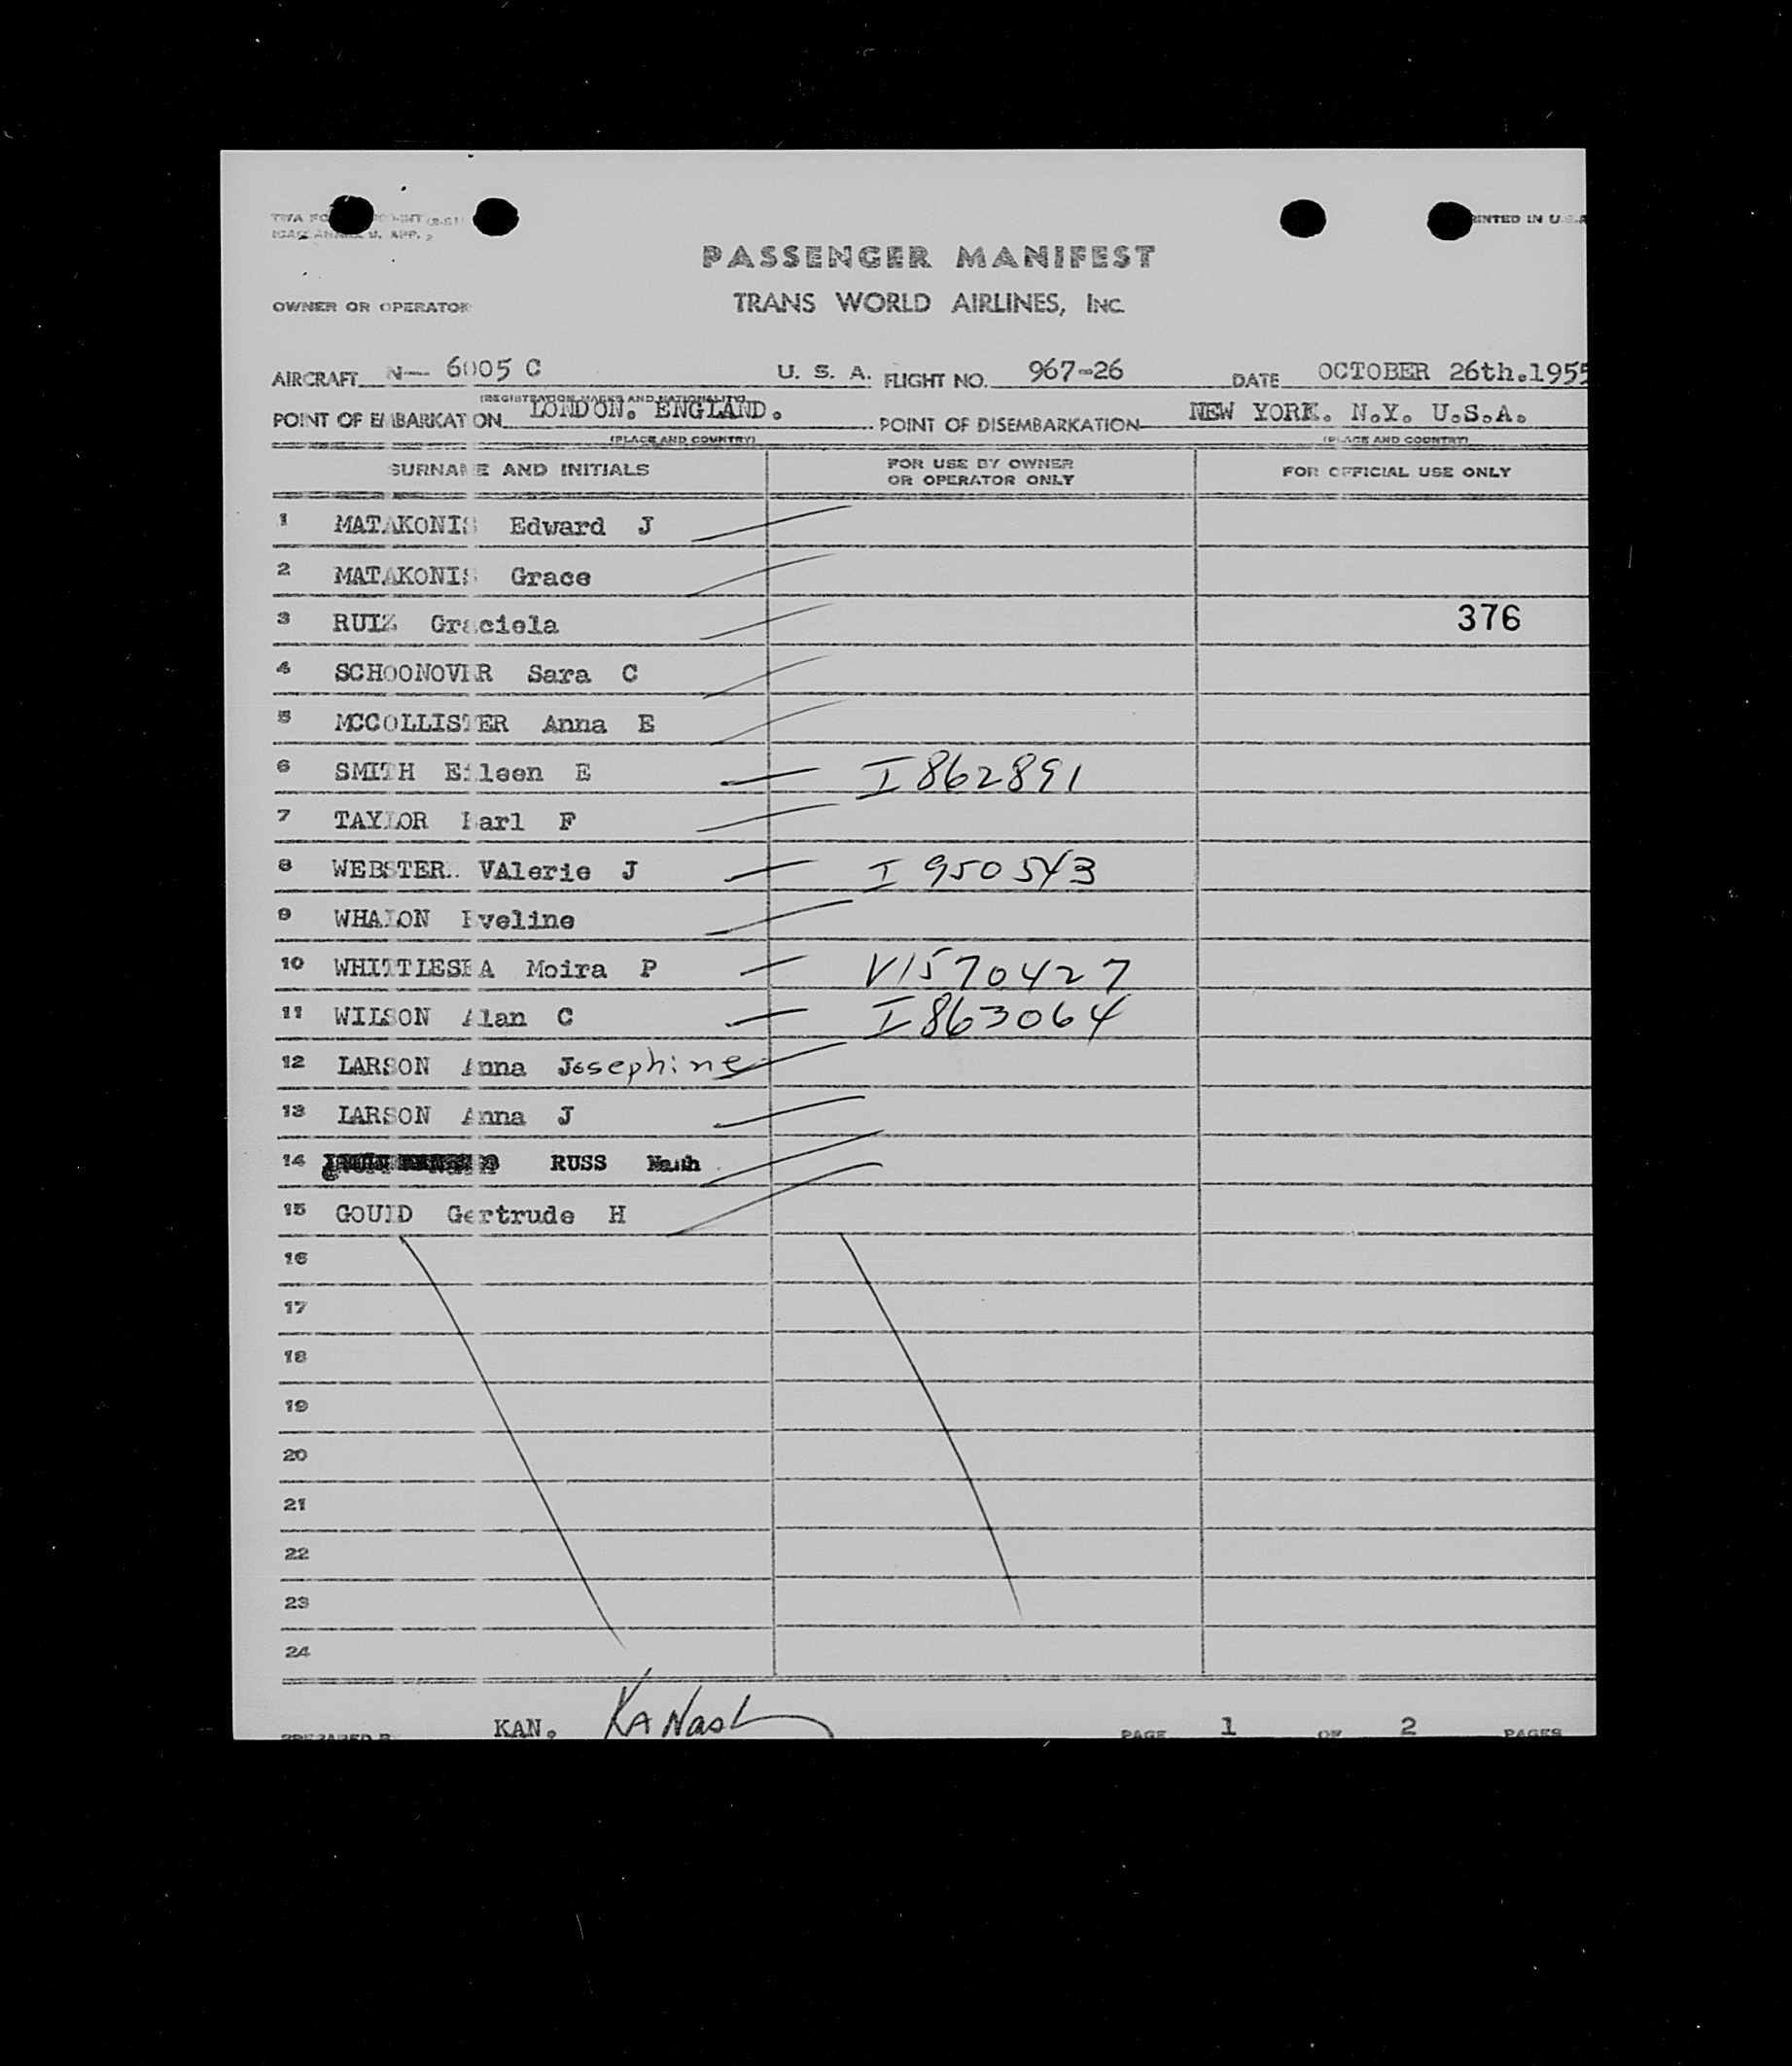 PRINTED IN U.S.A
PASSENGER MANIFEST
OWNER OR OPERATOR TRANS WORLD AIRLINES, INC.
AIRCRAFT N— 6005 C U. S. A. FLIGHT NO. 967-26 DATE OCTOBER 26th.1955
(REGISTRATION MARKS AND NATIONALITY)
POINT OF EMBARKATION LONDON. ENGLAND. POINT OF DISEMBARKATION NEW YORK. N.Y. U.S.A.
(PLACE AND COUNTRY) (PLACE AND COUNTRY)
SURNAME AND INITIALS FOR USE BY OWNER OR OPERATOR ONLY FOR OFFICIAL USE ONLY
1 MATAKONIS Edward J
2 MATAKONIS Grace
3 RUIZ Graciela 376
4 SCHOONOVER Sara C
5 MCCOLLISTER Anna E
6 SMITH Eileen E I862891
7 TAYLOR Earl F
8 WEBSTER. VAlerie J I 950543
9 WHALON Eveline
10 WHITTLESEA Moira P V1570427
11 WILSON Alan C I863064
12 LARSON Anna Josephine
13 LARSON Anna J
14 RUSS
15 GOULD Gertrude H
16
17
18
19
20
21
22
23
24
PREPARED BY KAN. KANash PAGE 1 OF 2 PAGES